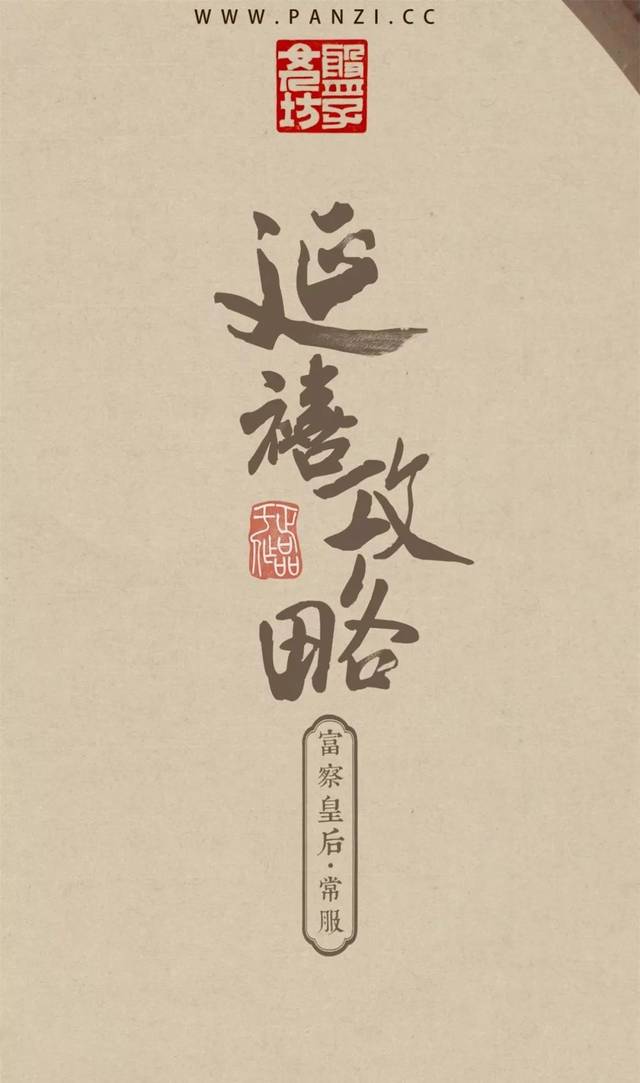 WWW.PANZI.CC
盤子
女人坊
延禧攻略
正品
于作
富察皇后·常服